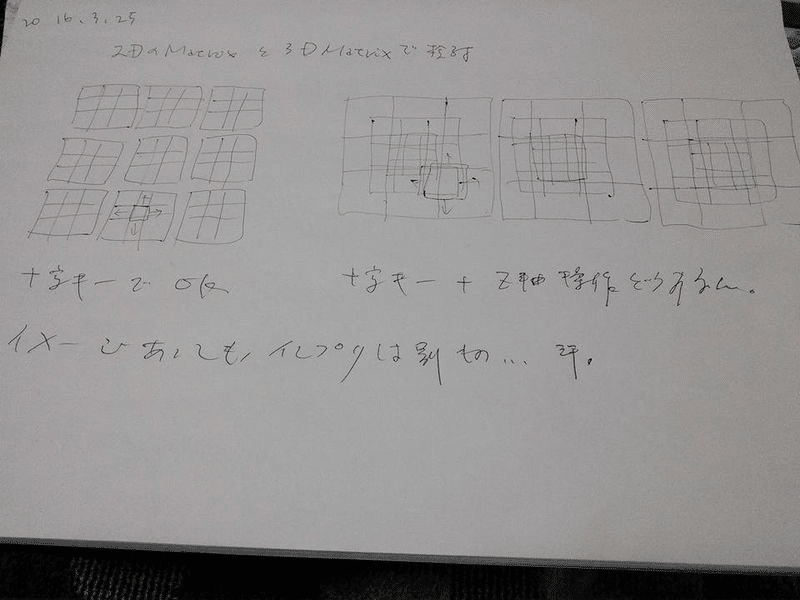 2016.3.25
2DのMatrixと3DMatrixで検討
十字キーでOK
十字キー + Z軸操作どうすんの。
イメージあっても、インプリは別もの...